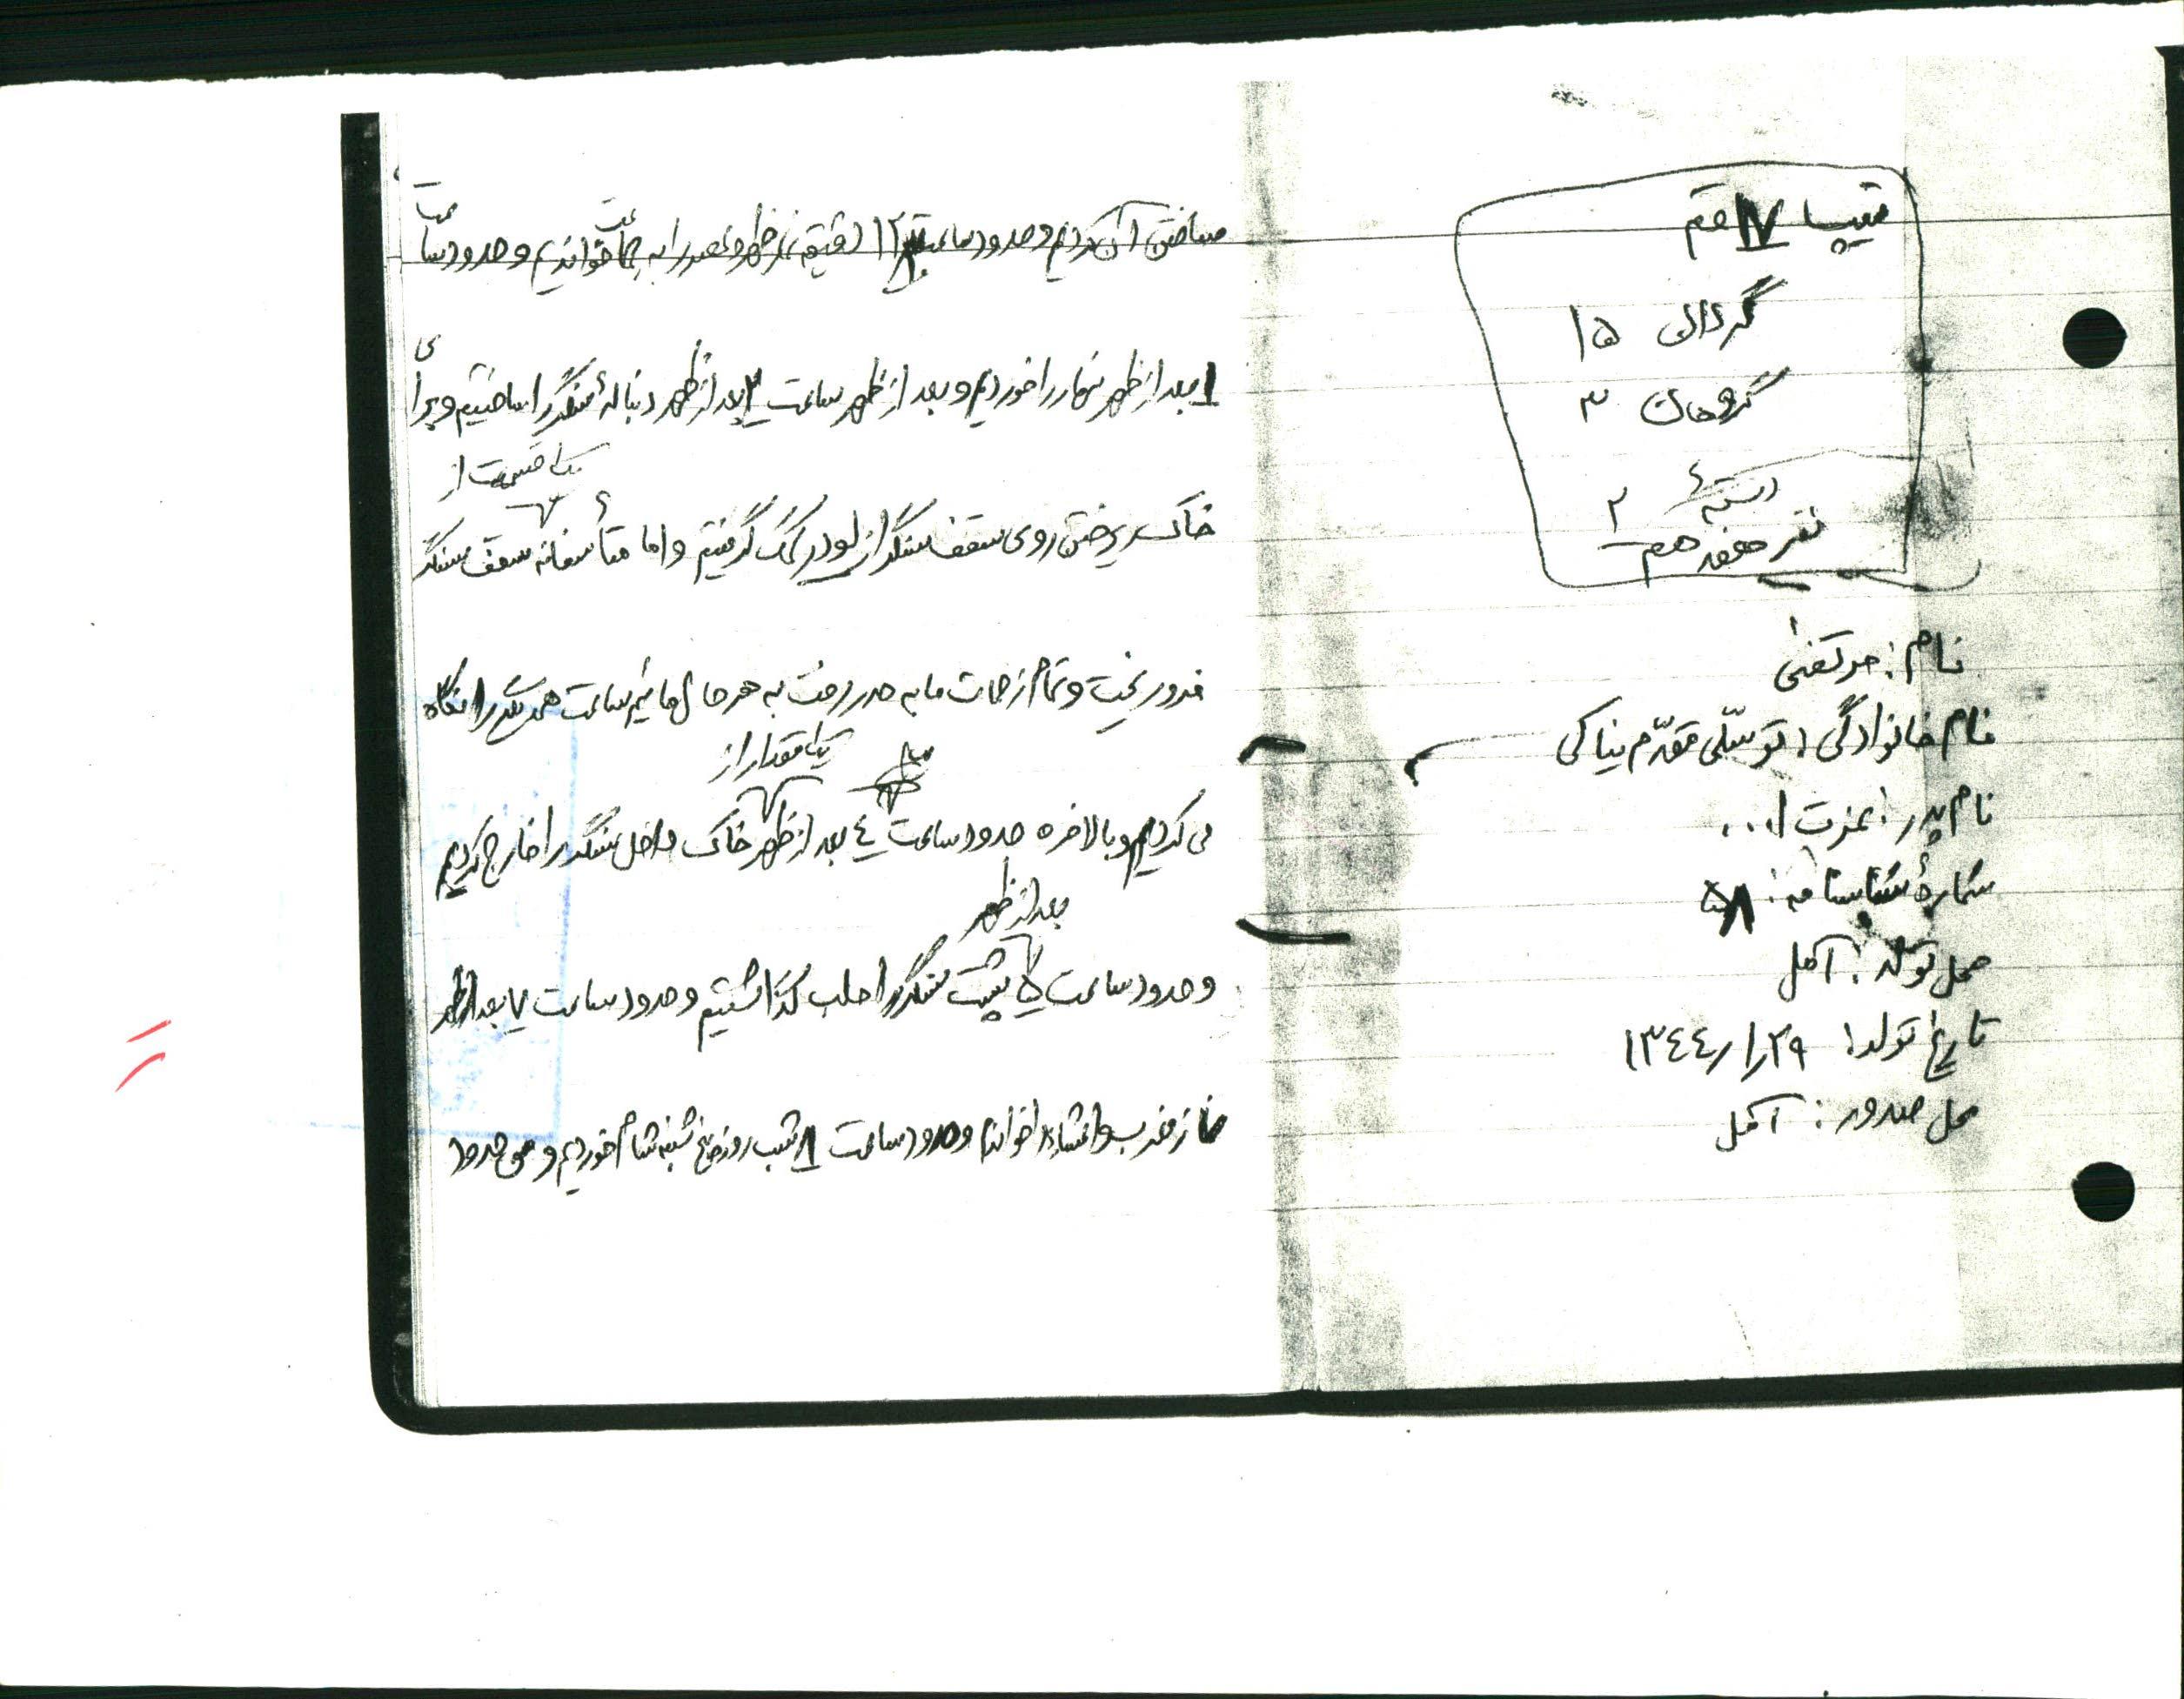 تیپ ۱۷ قم
گردان ۱۵
گروهان ۳
دسته ٤ ۲
نفر هفدهم
نام: مرتضی
نام خانوادگی: توسّلی مقدّم نیاکی
نام پدر: عزت ا...
شمارهٔ شناسنامه: ۵۸
محل تولّد: آمل
تاریخ تولد: ۱۳٤٤/۱/۲۹
محل صدور: آمل
ساختن آن کردیم و حدود ساعت ۱۲ دقیقه نماز ظهر و عصر را به جماعت خواندیم و حدود ساعت
۱ بعد از ظهر نهار را خوردیم و بعد از ظهر ساعت ۲ بعد از ظهر دنبالهٔ سنگر را ساختیم و برای
خاک ریختن روی سقف سنگر از لودر کمک گرفتیم و اما متأسفانه یک قسمت از سقف سنگر
فرو ریخت و تمام زحمات ما به هدر رفت به هر حال ساعت را نگاه
می کردیم و بالاخره حدود ساعت ٤ بعد از ظهر یک مقدار از خاک داخل سنگر را خارج کردیم
و حدود ساعت ۵ بعد از ظهر پشت سنگر را حلب گذاشتیم و حدود ساعت ۷ بعد از ظهر
نماز مغرب و عشاء را خواندم و حدود ساعت ۸ شب روز پنج شنبه شام خوردیم و حدود